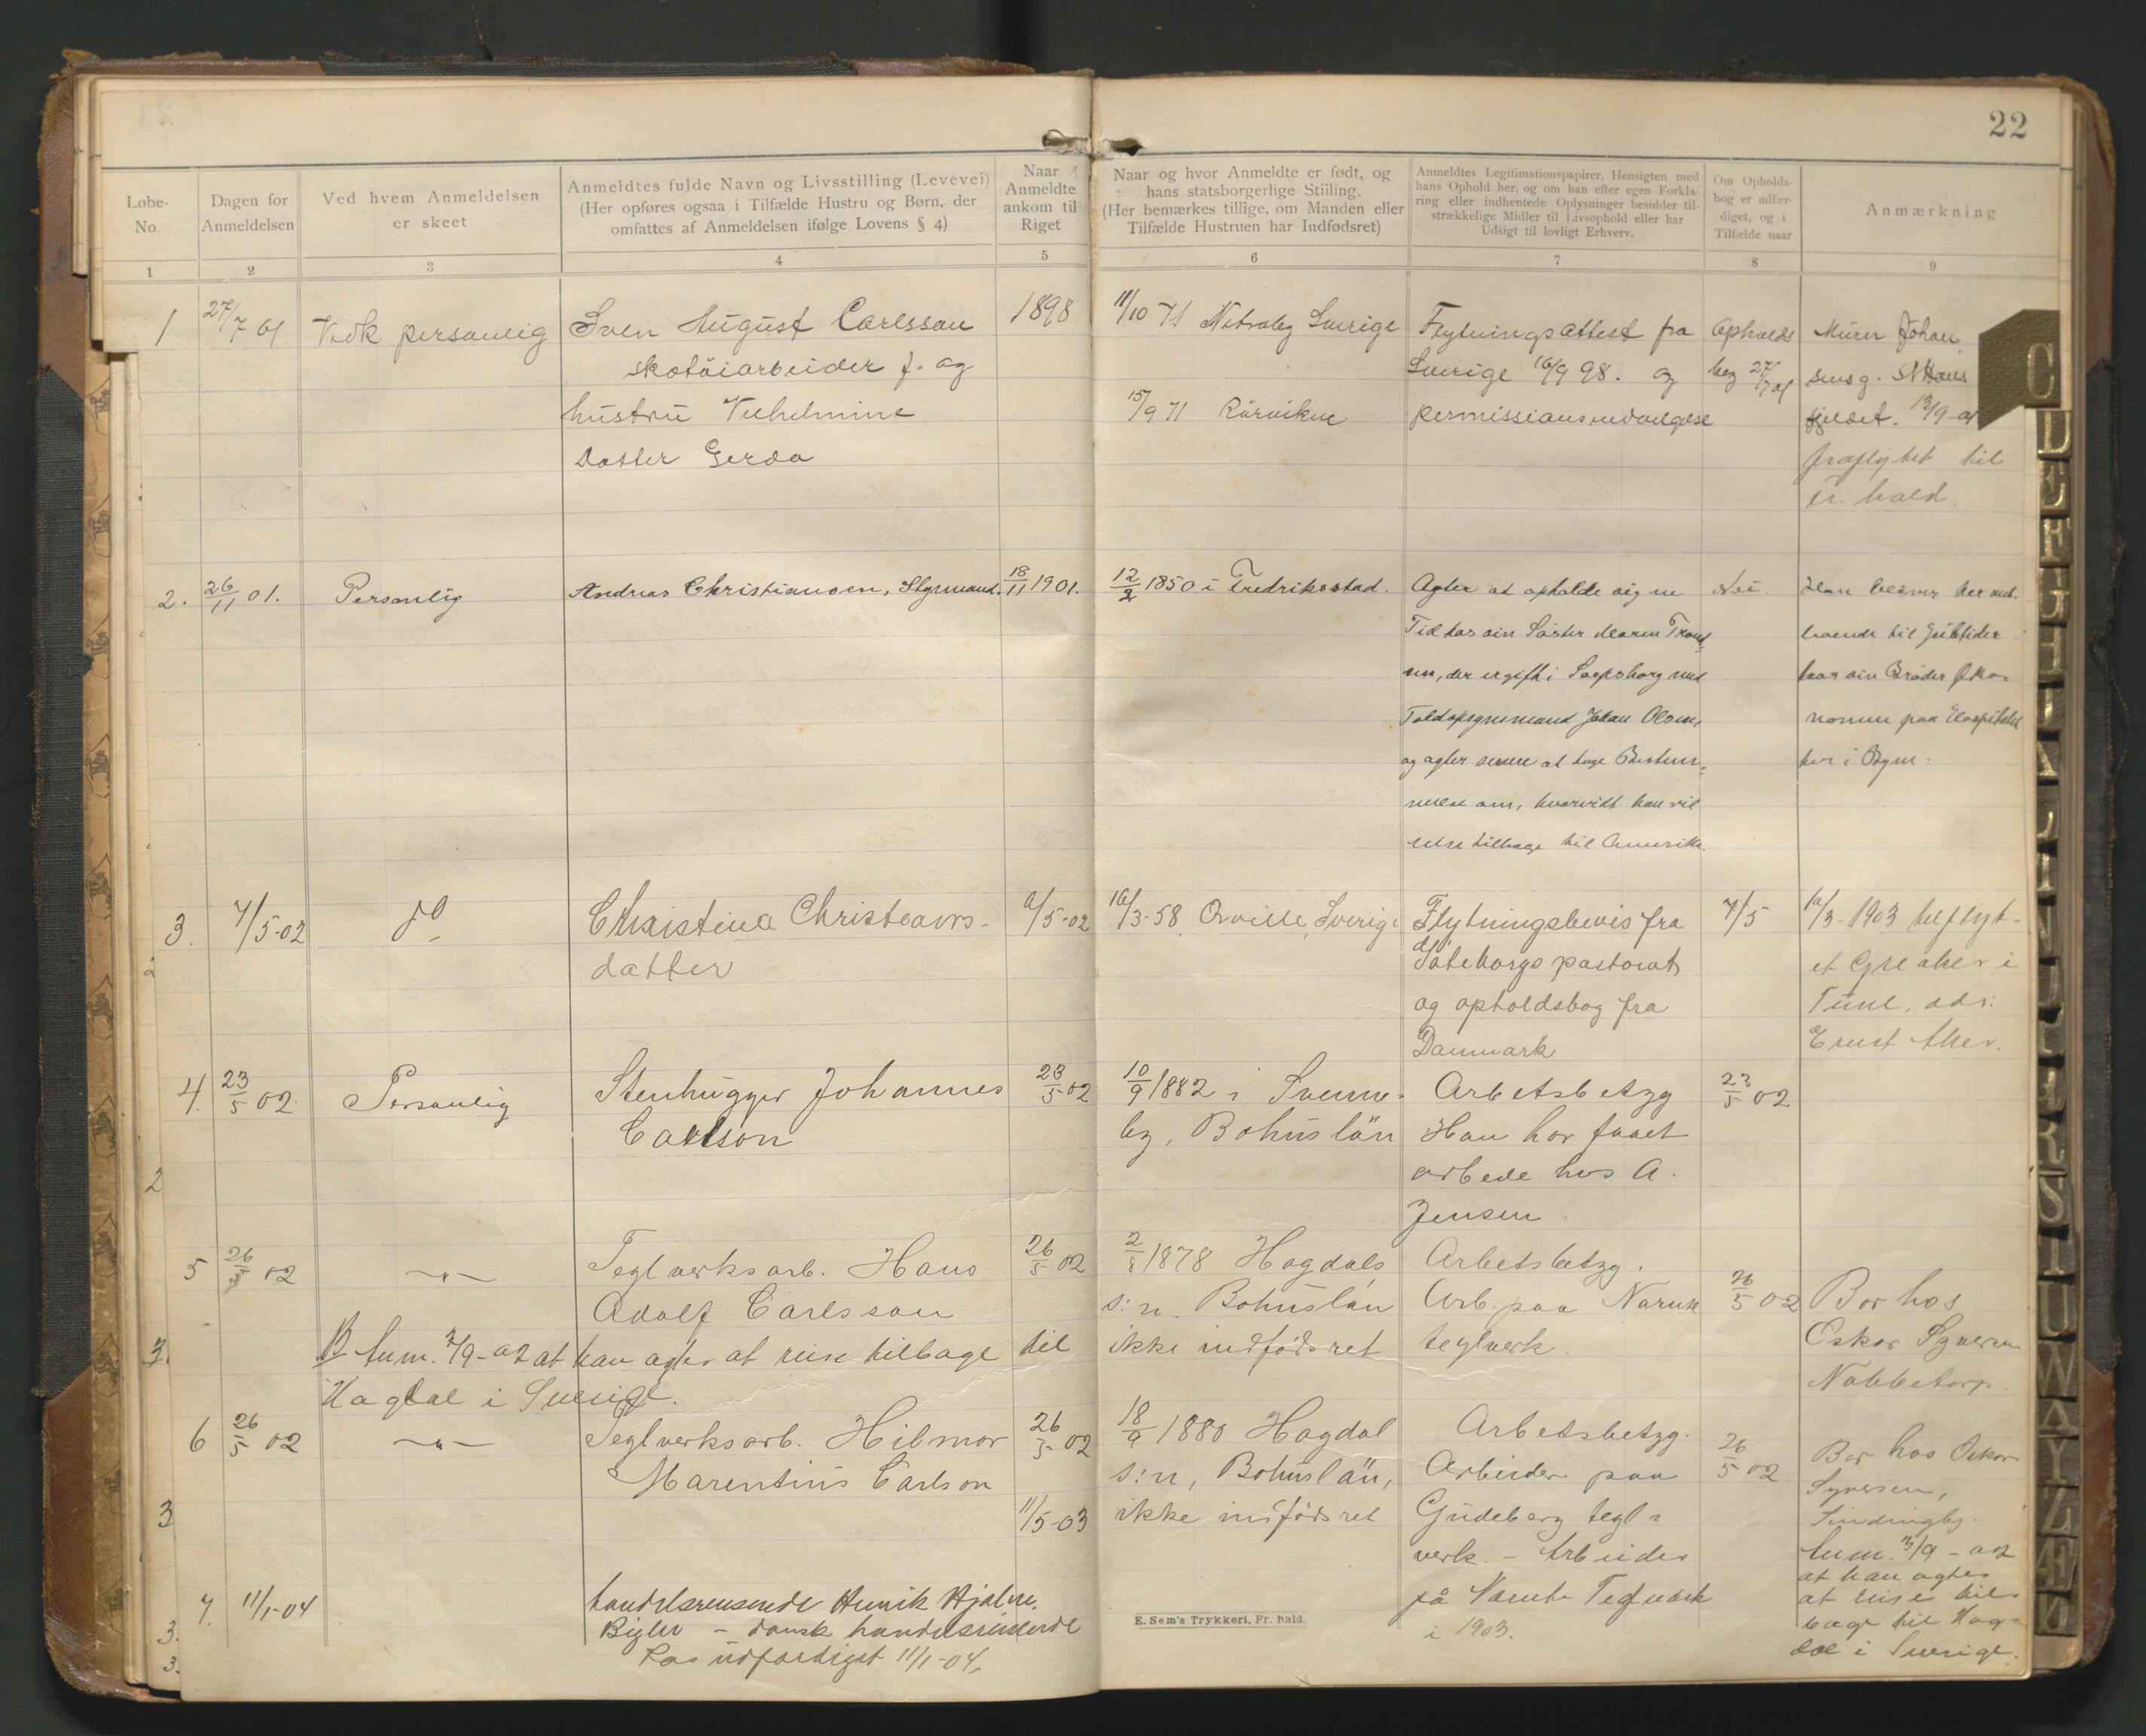 22
Løbe-
No.
Dagen for
Anmeldelsen
Ved hvem Anmeldelsen
er skeet
Anmeldtes fulde Navn og Livsstilling (Levevei)
(Her opføres ogsaa i Tilfælde Hustru og Børn, der
omfattes af Anmeldelsen ifølge Lovens § 4)
Naar
Anmeldte
ankom til
Riget
Naar og hvor Anmeldte er født, og
hans statsborgerlige Stiiling.
(Her bemærkes tillige, om Manden eller
Tilfælde Hustruen har Indfødsret)
Anmeldtes Legitimationspapirer, Hensigten med
hans Ophold her, og om han efter egen Forkla-
ring eller indhentede Oplysninger besidder til-
strækkelige Midler til Livsophold eller har
Udsigt til lovligt Erhverv.
Om Opholds-
bog er udfær-
diget, og i
Tilfælde naar
Anmærkning
1 2 3 4 5 6 7 8 9
1 27/7 01 Vedk personlig Sven August Carlsson 1898 11/10 71 Sverige Flytningsattest fra Opholds Murer Johan
skotöiarbeider f. og Sverige 16/9 98. og bog 27/7 01
hustru Vilhelmine 15/9 71 fjeldet. 13/9-01
Datter Gerda fraflyttet til
Fr.hald
2. 26/11 01. Personlig Andreas Christiansen, Styrmand. 18/11 1901. 12/2 1850 i Fredriksstad. Agter at opholde sig en Nei.
Tid hos sin Søster Maren
der er gift i Sarpsborg med hos sin Broder Øko-
Toldopsynsmand Johan Olsen, nomen paa Hospitalet
og agter senere at tage Bestem- her i Byen.
melse om, hvorvidt han vil
reise tilbage til Amerika.
3. 7/5-02 do Christina Christians- 6/5-02 16/3-58 Sverige Flytningsbevis fra 7/5 10/3-1903
datter Göteborgs pastorat et Greaker i
og opholdsbog fra Tune, adr.
Danmark Ernst Aker.
4. 23/5 02. Personlig Stenhugger Johannes 23/5 02 10/9 1882 i Svenne- Arbetsbetyg 23/5 02
Carlson by, Bohuslän Han har faaet
arbeide hos A.
Jensen.
5 26/5 02 —"— Teglverksarb. Hans 26/5 02 2/8 1878 Hogdals Arbetsbetyg.
Adolf Carlsson s:n. Bohuslän Arb. paa 26/5 02 Bor hos
Anm. 3/9-02 at han agter at reise tilbage til ikke indfødsret teglverk. Oskar Syversen
Hagdal i Sverige. Nabbetorp.
6 26/5 02 —"— Teglverksarb. Hilmar 26/5 02 18/9 1880 Hogdal Arbetsbetyg. 26/5 02 Bor hos Oskar
Marentius Carlson s:n, Bohuslän, Arbeider paa Syversen,
11/5-03 ikke indfødsret Gudeberg tegl-
verk. – Arbeider Anm. 3/9-02
på Teglverk at han agter
i 1903. at reise til-
bage til Hag-
dal i Sverige.
7. 11/1-04 handelsreisende Henrik Hjalm.
Bigler – dansk handelsreisende
Pas udfærdiget 11/1-04.
E. Sem's Trykkeri, Fr.hald.
C
D
E
F
G
H